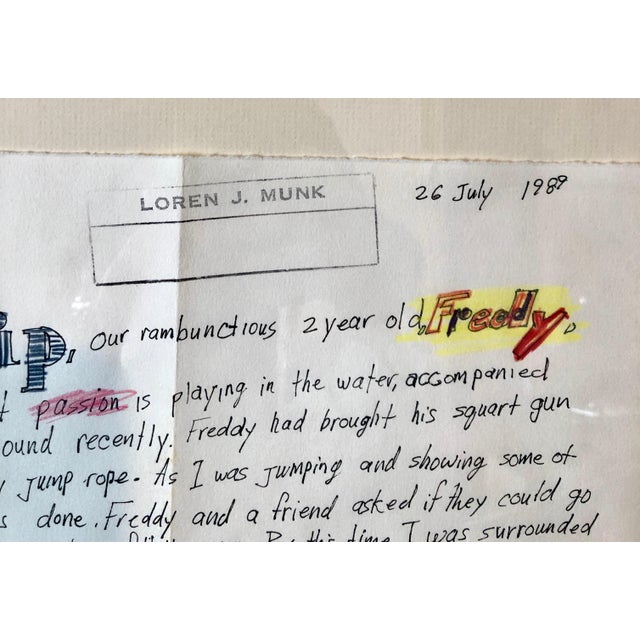 LOREN J. MUNK
26 July 1989
ip, our rambunctious 2 year old, Freddy,
t passion is playing in the water, accompanied
ound recently. Freddy had brought his squart gun
y jump rope. As I was jumping and showing some of
s done. Freddy and a friend asked if they could go
By this time I was surrounded